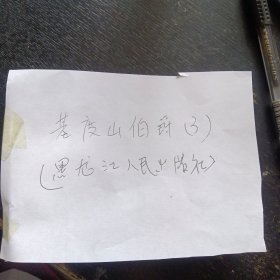 基度山伯爵(3)
(黑龙江人民出版社)